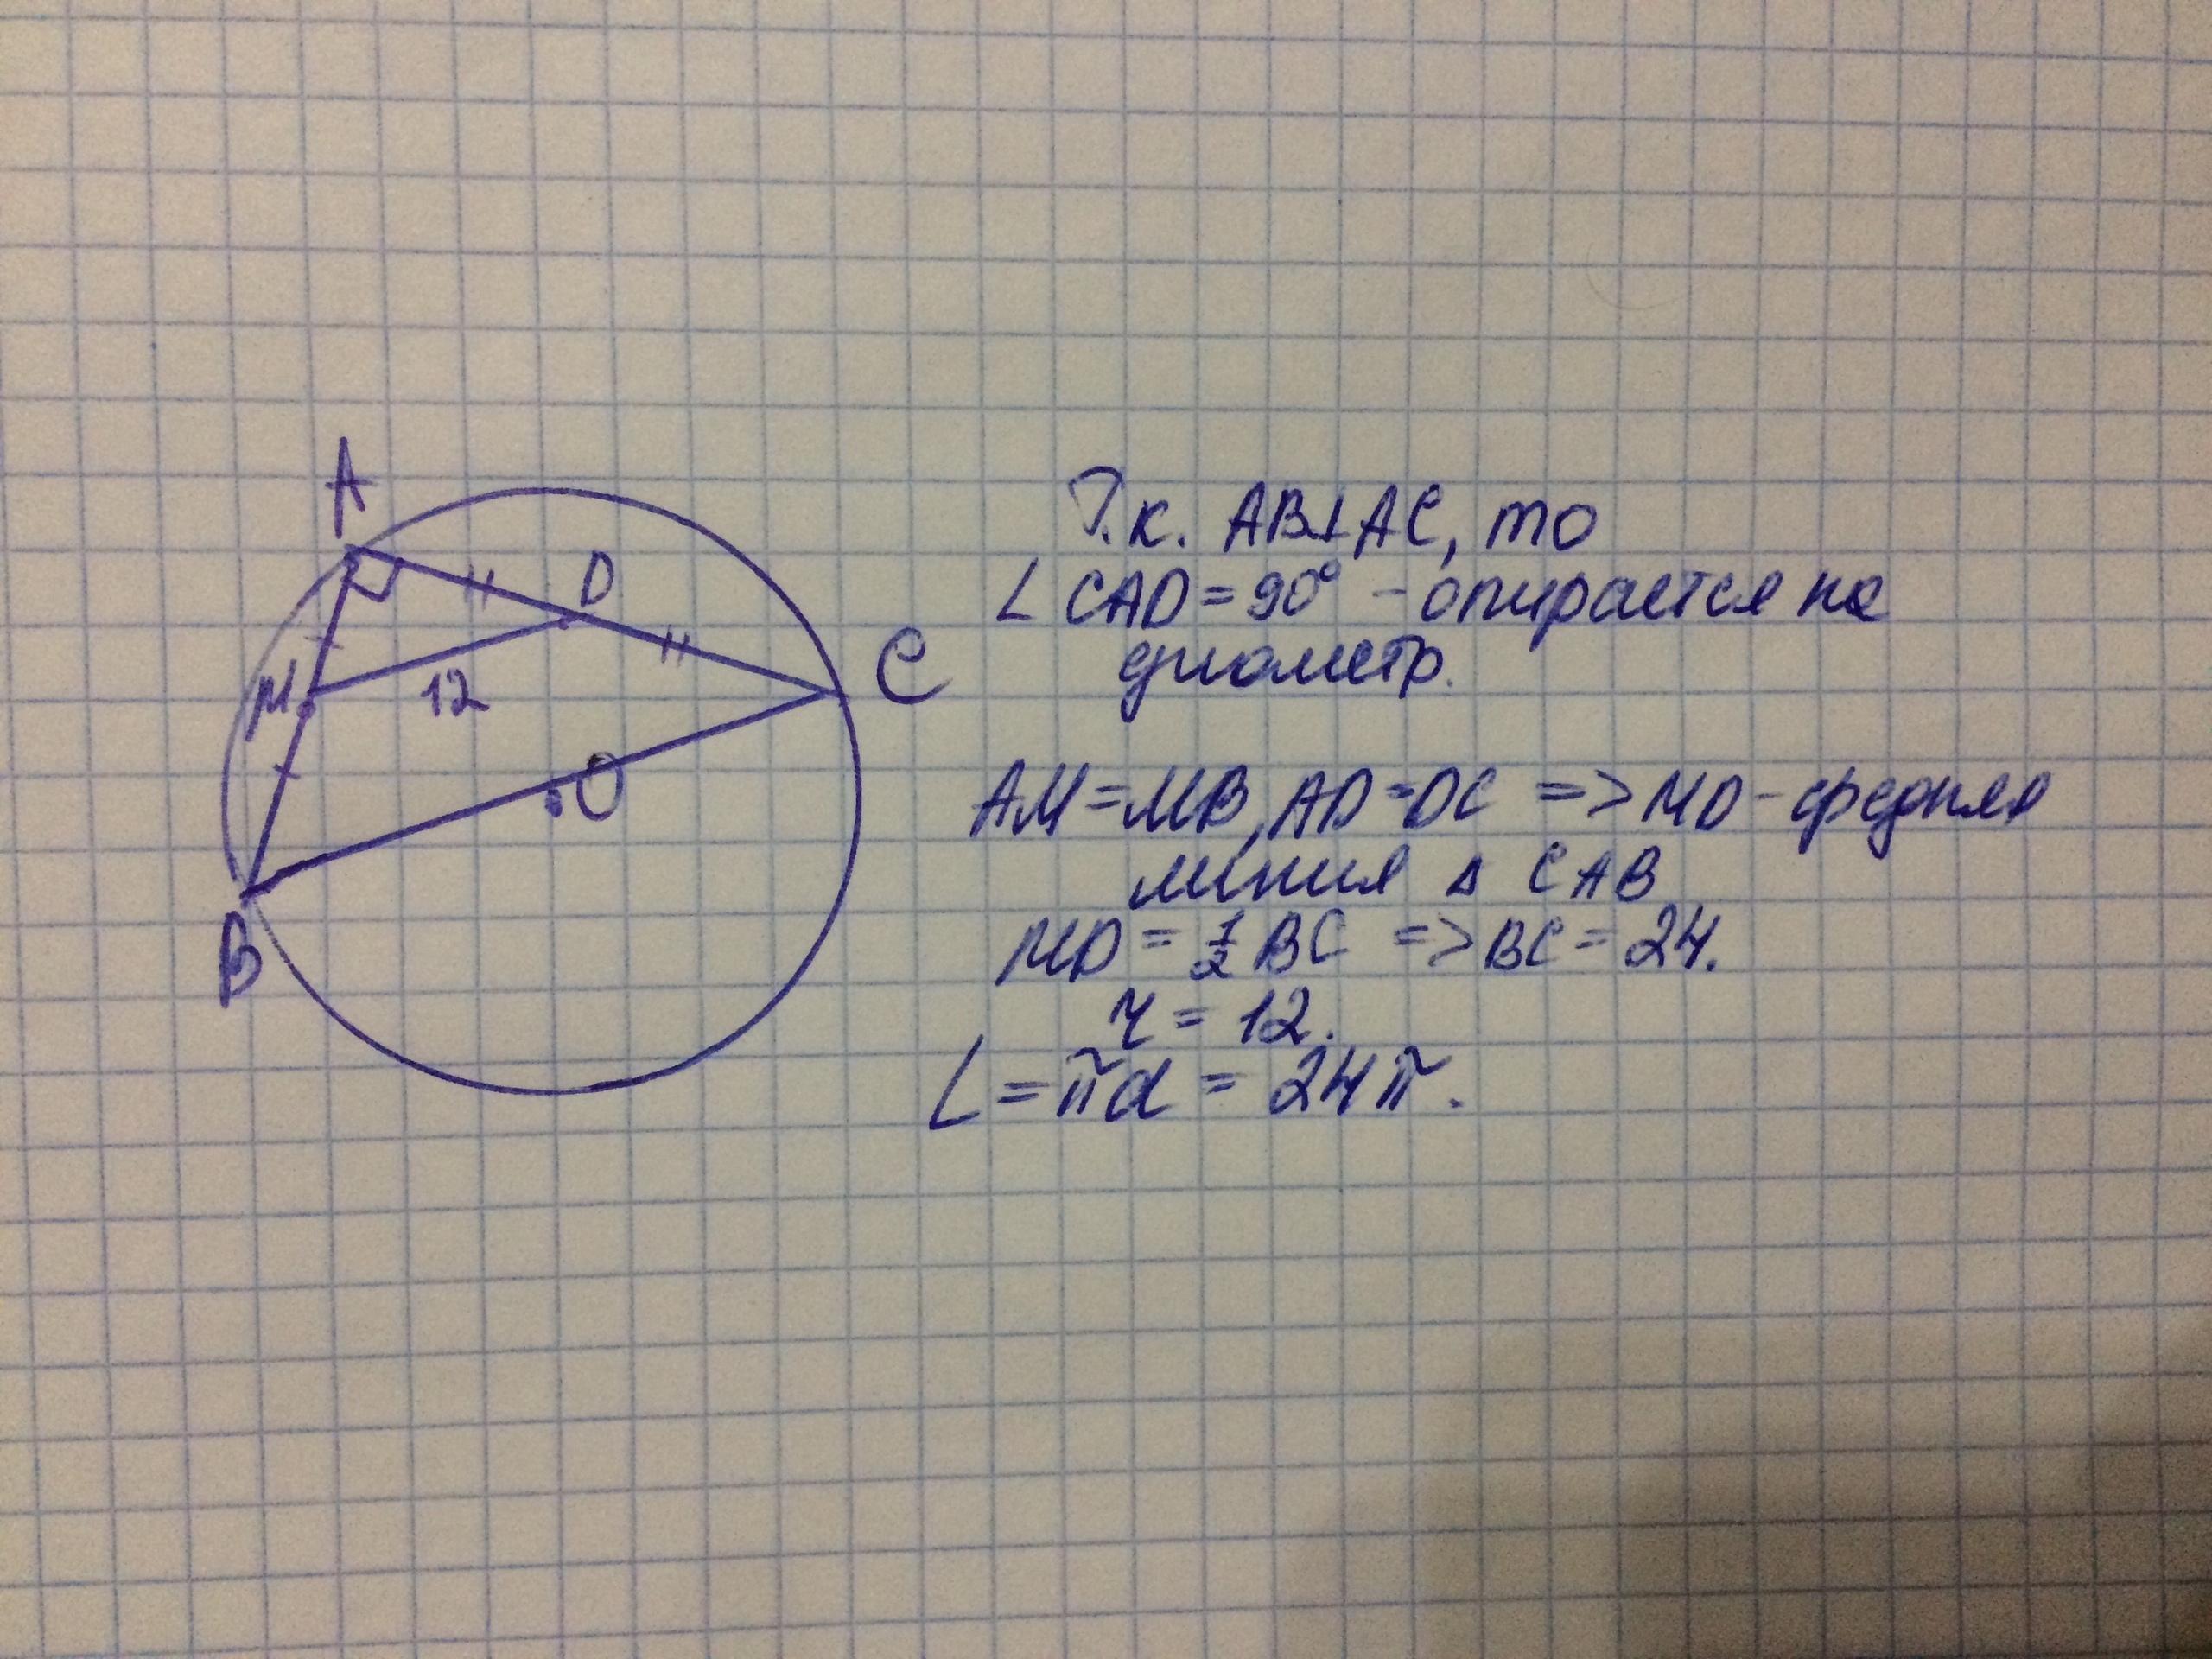 A
D
C
M
12
O
B
Т.к. AB⊥AC, то
∠ CAD = 90° - опирается на
диаметр.
AM = MB, AD = DC => MD - средняя
линия Δ CAB
MD = 1/2 BC => BC = 24.
r = 12.
L = πd = 24π.